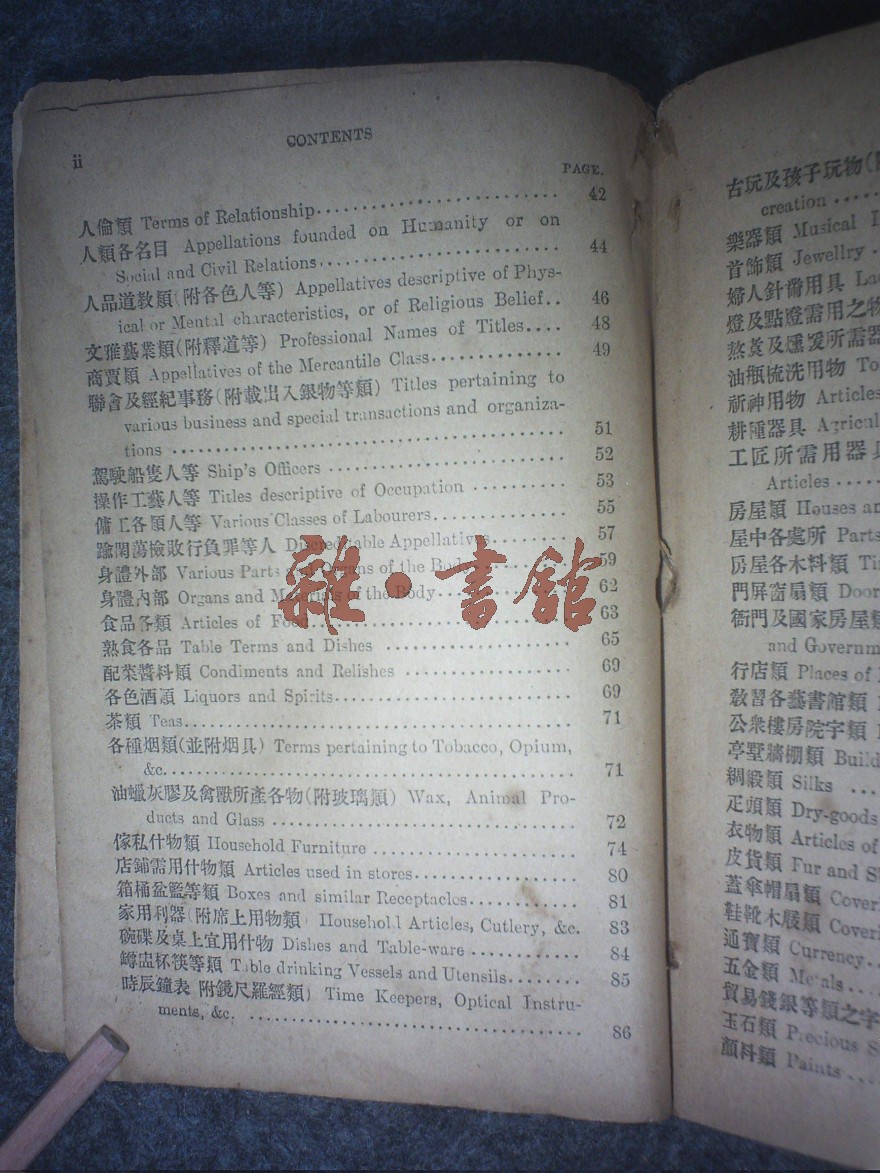 ii
CONTENTS
PAGE.
人倫類 Terms of Relationship 42
人類各名目 Appellations founded on Humanity or on
Social and Civil Relations 44
人品道敎類(附各色人等) Appellatives descriptive of Phys-
ical or Mental characteristics, or of Religious Belief.. 46
文雅藝業類(附釋道等) Professional Names of Titles.... 48
商賈類 Appellatives of the Mercantile Class 49
聯會及經紀事務(附載出入銀物等類) Titles pertaining to
various business and special transactions and organiza-
tions 51
駕駛船隻人等 Ship's Officers 52
操作工藝人等 Titles descriptive of Occupation 53
傭工各類人等 Various Classes of Labourers 55
踰閑蕩檢敗行負罪等人 Discreditable Appellatives 57
身體外部 Various Parts and Organs of the Body 59
身體內部 Organs and Materials of the Body 62
食品各類 Articles of Food 63
熟食各品 Table Terms and Dishes 65
配菜醬料類 Condiments and Relishes 69
各色酒類 Liquors and Spirits 69
茶類 Teas 71
各種烟類(並附烟具) Terms pertaining to Tobacco, Opium,
&c. 71
油蠟灰膠及禽獸所產各物(附玻璃類) Wax, Animal Pro-
ducts and Glass 72
傢私什物類 Household Furniture 74
店鋪需用什物類 Articles used in stores 80
箱桶盆籃等類 Boxes and similar Receptacles 81
家用利器(附席上用物類) Household Articles, Cutlery, &c. 83
碗碟及桌上宜用什物 Dishes and Table-ware 84
罇盅杯筷等類 Table drinking Vessels and Utensils 85
時辰鐘表 附鏡尺羅經類) Time Keepers, Optical Instru-
ments, &c. 86
雜·書館
古玩及孩子玩物
creation
樂器類 Musical
首飾類 Jewellry
婦人針黹用具
燈及點燈需用之物
熬煑及煖爰所需器
油瓶梳洗用物
祈神用物 Articles
耕種器具
工匠所需用器具
Articles
房屋類 Houses and
屋中各處所 Parts
房屋各木料類
門屏窗扇類 Door
衙門及國家房屋類
and Governm
行店類 Places of
敎習各藝書館類
公衆樓房院宇類
亭墅牆棚類 Build
綢緞類 Silks
疋頭類 Dry-goods
衣物類 Articles of
皮貨類 Fur and
蓋傘帽扇類 Coveri
鞋靴木屐類 Coveri
通寶類 Currency
五金類 Metals
貿易錢銀等類之字
玉石類 Precious
顏料類 Paints